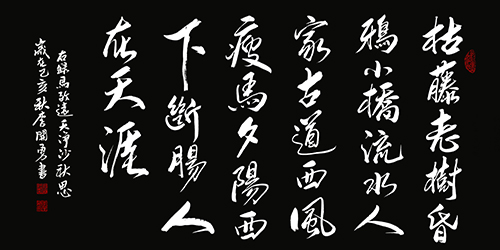 枯藤老樹昏
鴉小橋流水人
家古道西風
瘦馬夕陽西
下斷腸人
在天涯
右錄馬致遠天淨沙秋思
歲在己亥秋李閣勇書